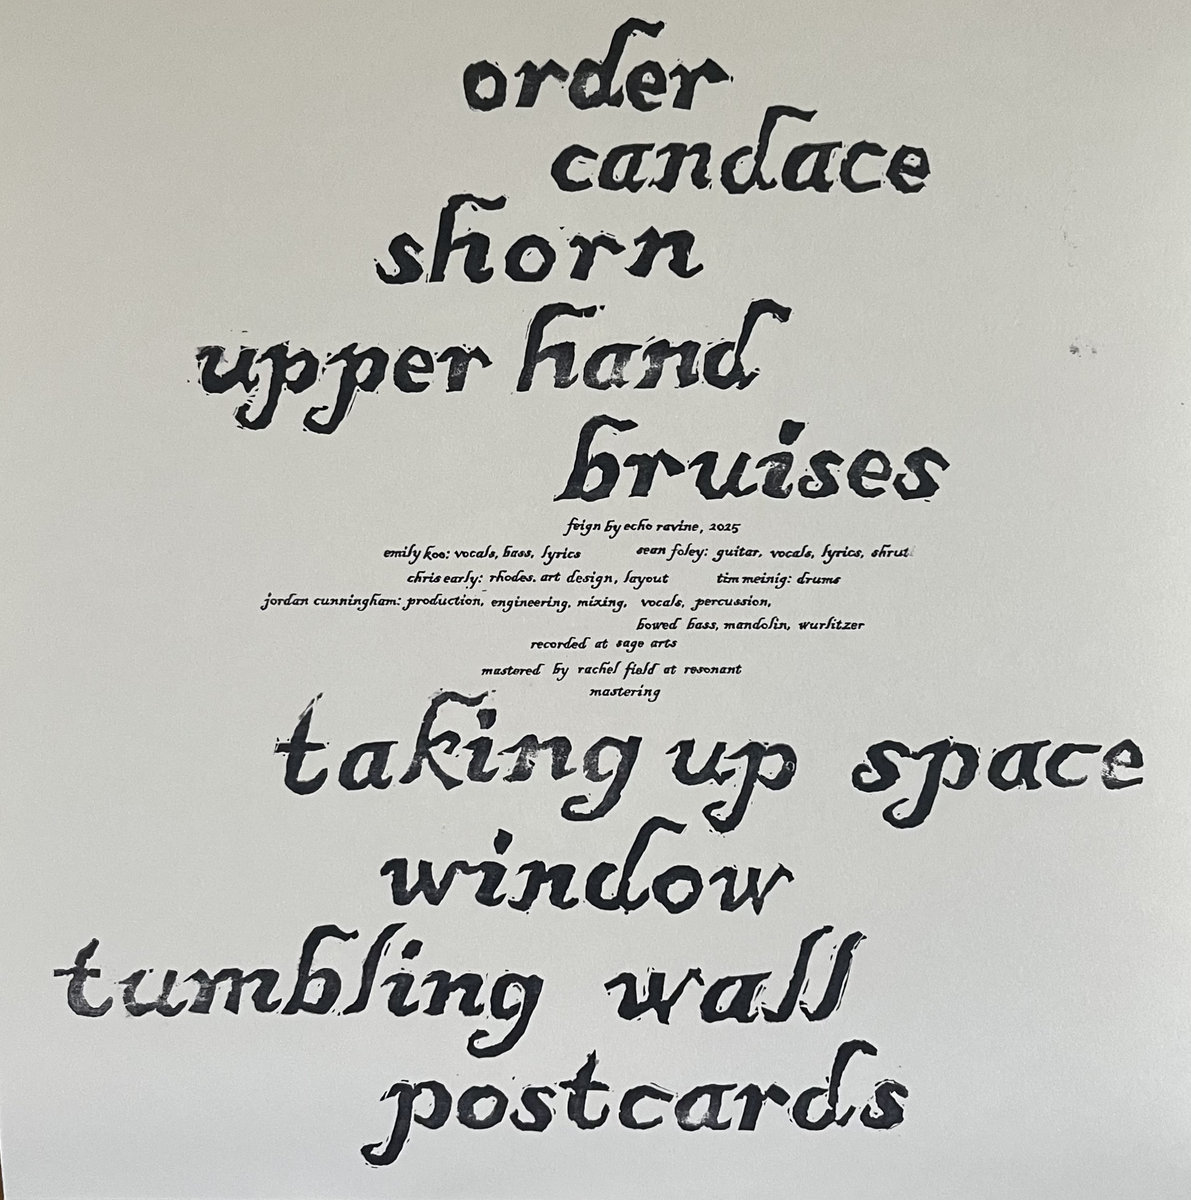 order
candace
shorn
upper hand
bruises
feign by echo ravine, 2025
emily koo: vocals, bass, lyrics sean foley: guitar, vocals, lyrics, shrut
chris early: rhodes. art design, layout tim meinig: drums
jordan cunningham: production, engineering, mixing, vocals, percussion,
bowed bass, mandolin, wurlitzer
recorded at sage arts
mastered by rachel field at resonant
mastering
taking up space
window
tumbling wall
postcards